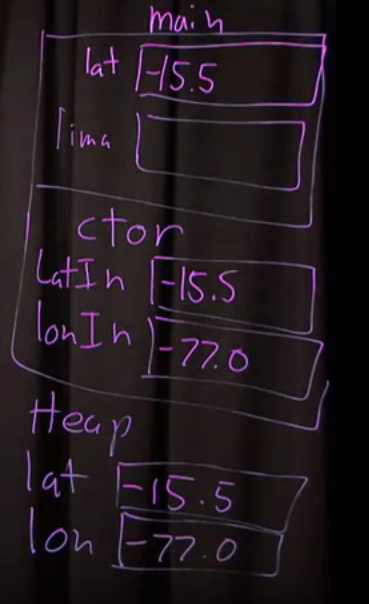 main
lat -15.5
lima
ctor
LatIn -15.5
lonIn -77.0
Heap
lat -15.5
lon -77.0